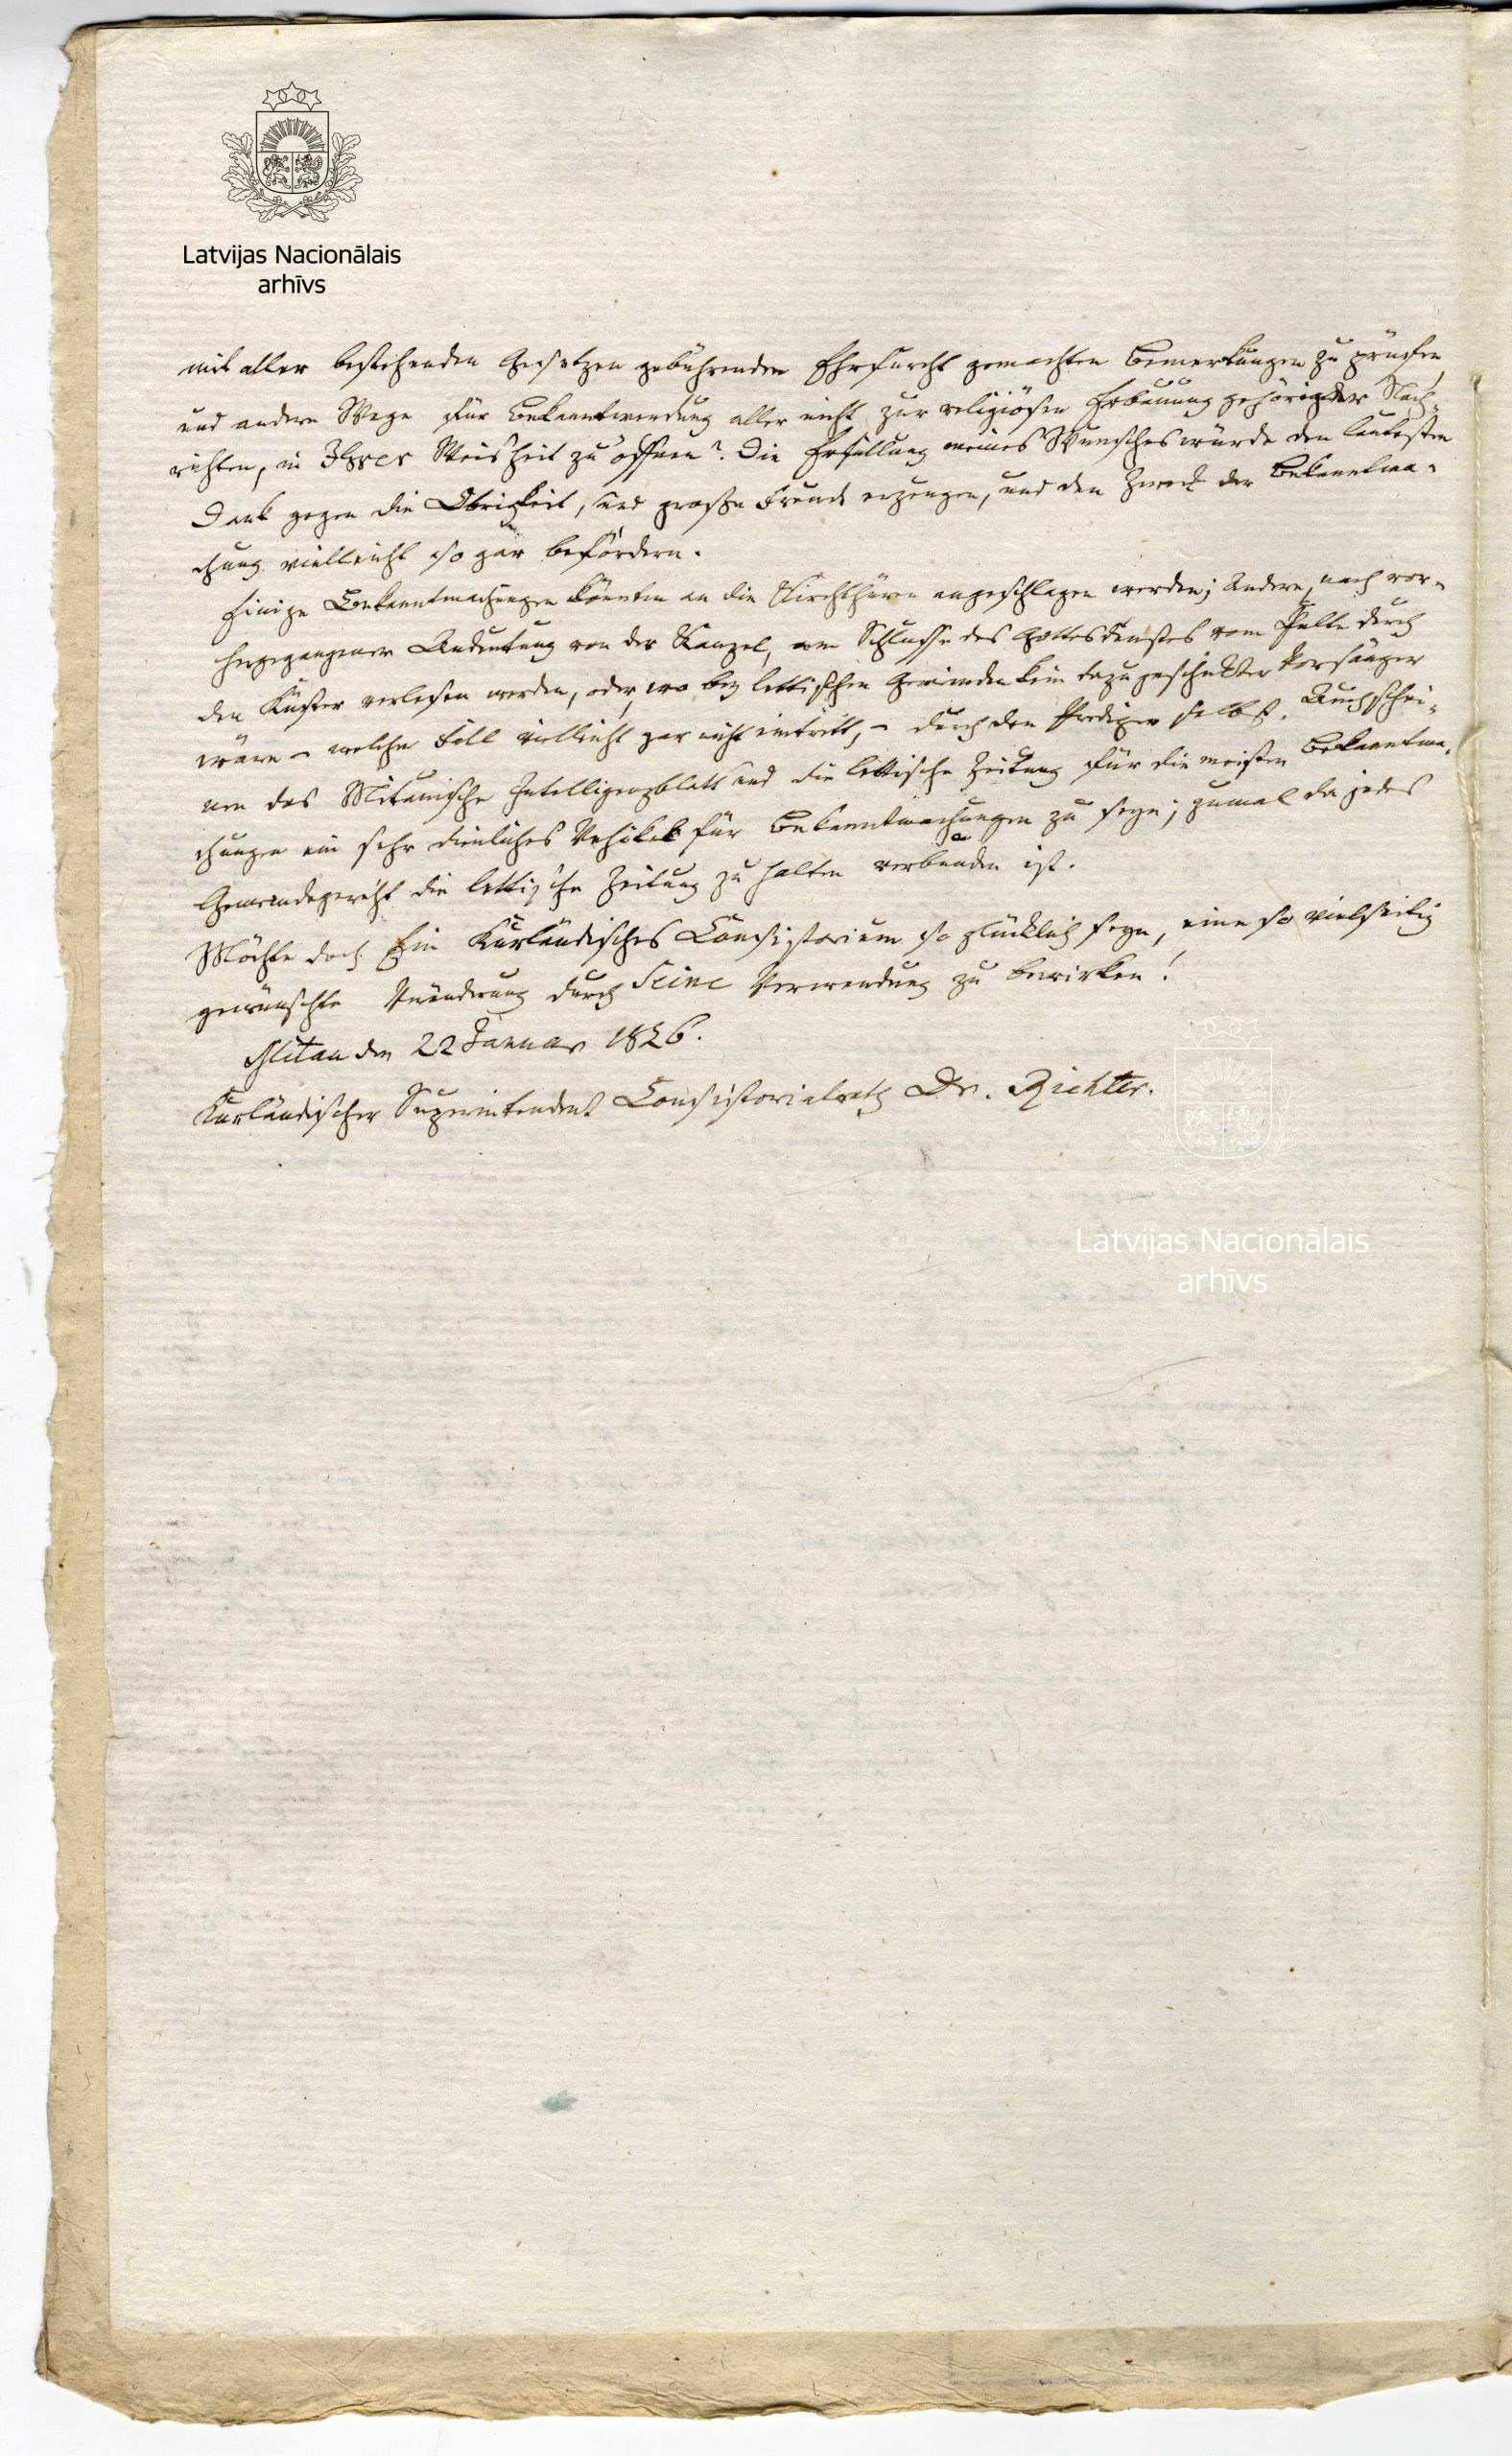 Latvijas Nacionālais
arhīvs
mit aller bestehenden Gesetzen gebührenden Ehrfurcht gemachten Bemerkungen zu prüfen,
und andere Wege für Bekanntwerdung aller nicht zur religiösen Erbauung gehöriger Nach-
richten, in Ihrer Weisheit zu öffnen? Die Erfüllung meines Wunsches würde den lautesten
Dank gegen die Obrigkeit, und große Freude erzeugen, und den Zweck der Bekanntma-
chung vielleicht so gar befördern.
Einige Bekanntmachungen könnten an die Kirchthüren angeschlagen werden; Andere, nach vor-
hergegangener Andeutung von der Kanzel, am Schlusse des Gottesdienstes vom Pulte durch
den Küster verlesen werden, oder, wo bey lettischen Gemeinden kein dazu geschickter Vorsänger
wäre – welcher Fall vielleicht gar nicht eintritt, – durch den Prediger selbst. Auch schei-
nen das Mitauische Intelligenzblatt und die lettische Zeitung für die meisten Bekanntma-
chungen ein sehr dienliches Vehikel für Bekanntmachungen zu seyn; zumal da jedes
Gemeindegericht die lettische Zeitung zu halten verbunden ist.
Möchte doch Ein Kurländisches Consistorium so glücklich seyn, eine so vielseitig
gewünschte Veränderung durch Seine Verwendung zu bewirken!
Mitau den 22 Januar 1826.
Kurländischer Superintendent Consistorialrath Dr. Richter.
Latvijas Nacionālais
arhīvs